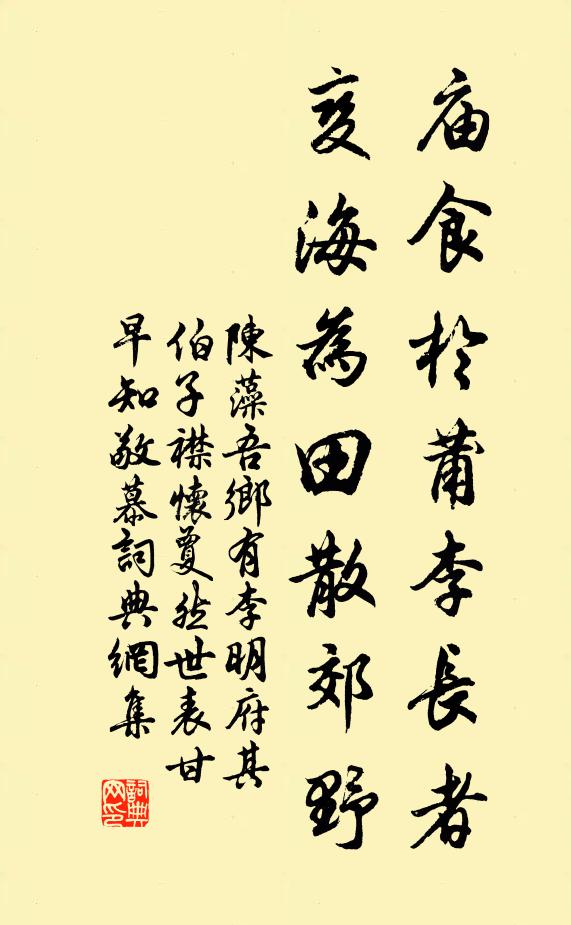 庙食於莆李長者
变海為田散郊野
陳藻吾鄉有李明府其
伯子襟懷夐然世表甘
早知敬慕詞典網集
詞典网印